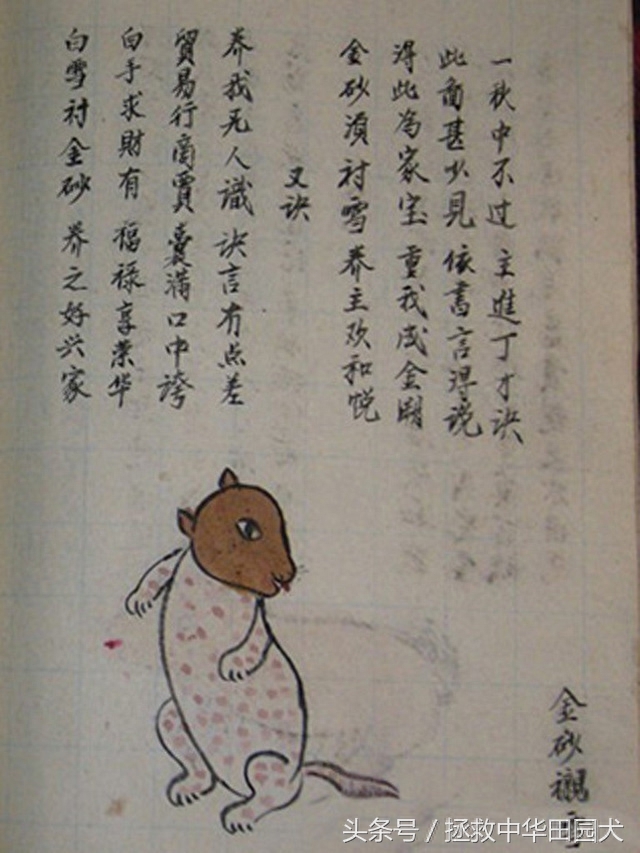 一秋中不过 主進丁才诀
此畜甚少見 依書言得说
得此為家宝 重我成金
金砂湏衬雪 养主欢和悦
又诀
养我无人識 诀言有点差
貿易行商賈 囊满口中誇
白手求財有 福禄享荣华
白雪衬金砂 养之好兴家
金砂襯雪
头条号／拯救中华田园犬